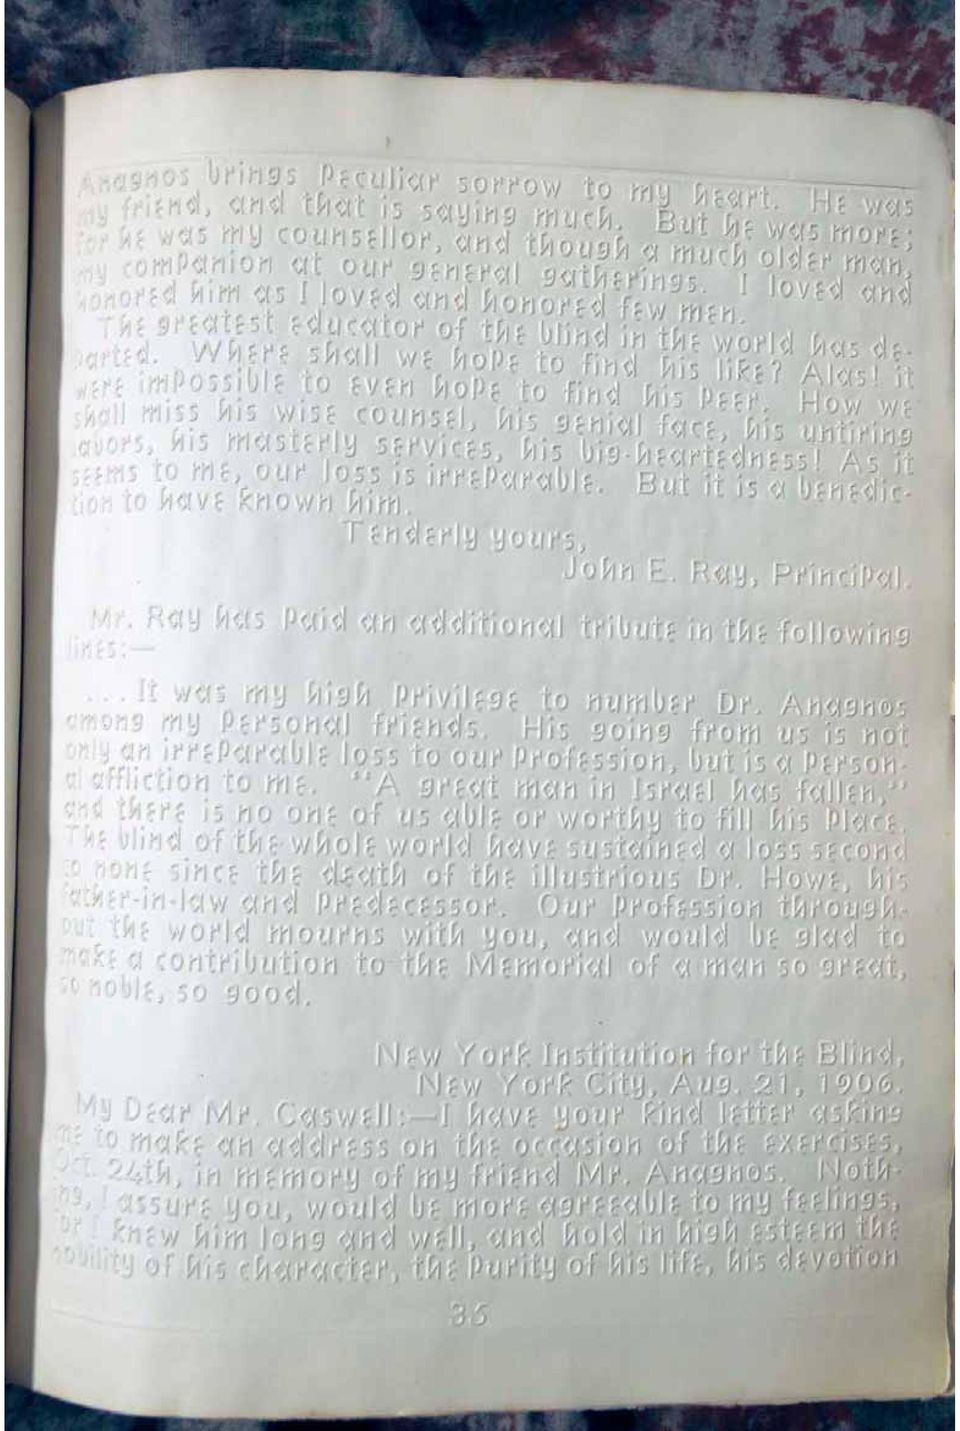 Anagnos brings peculiar sorrow to my heart. He was
my friend, and that is saying much. But he was more;
for he was my counsellor, and though a much older man,
my companion at our general gatherings. I loved and
honored him as I loved and honored few men.
The greatest educator of the blind in the world has de-
parted. Where shall we hope to find his like? Alas! it
were impossible to even hope to find his peer. How we
shall miss his wise counsel, his genial face, his untiring
labors, his masterly services, his big-heartedness! As it
seems to me, our loss is irreparable. But it is a benedic-
tion to have known him.
Tenderly yours,
John E. Ray, Principal.
Mr. Ray has paid an additional tribute in the following
lines:—
...It was my high privilege to number Dr. Anagnos
among my personal friends. His going from us is not
only an irreparable loss to our profession, but is a person-
al affliction to me. "A great man in Israel has fallen,"
and there is no one of us able or worthy to fill his place.
The blind of the whole world have sustained a loss second
to none since the death of the illustrious Dr. Howe, his
father-in-law and predecessor. Our profession through-
out the world mourns with you, and would be glad to
make a contribution to the Memorial of a man so great,
so noble, so good.
New York Institution for the Blind,
New York City, Aug. 21, 1906.
My Dear Mr. Caswell:—I have your kind letter asking
me to make an address on the occasion of the exercises,
Oct. 24th, in memory of my friend Mr. Anagnos. Noth-
ing, I assure you, would be more agreeable to my feelings,
for I knew him long and well, and hold in high esteem the
nobility of his character, the purity of his life, his devotion
35